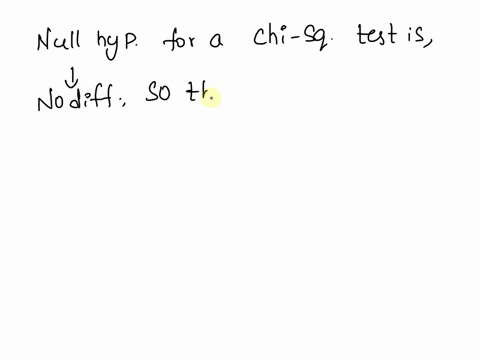 Null hyp. for a chi-sq. test is,
↓
No diff., so th